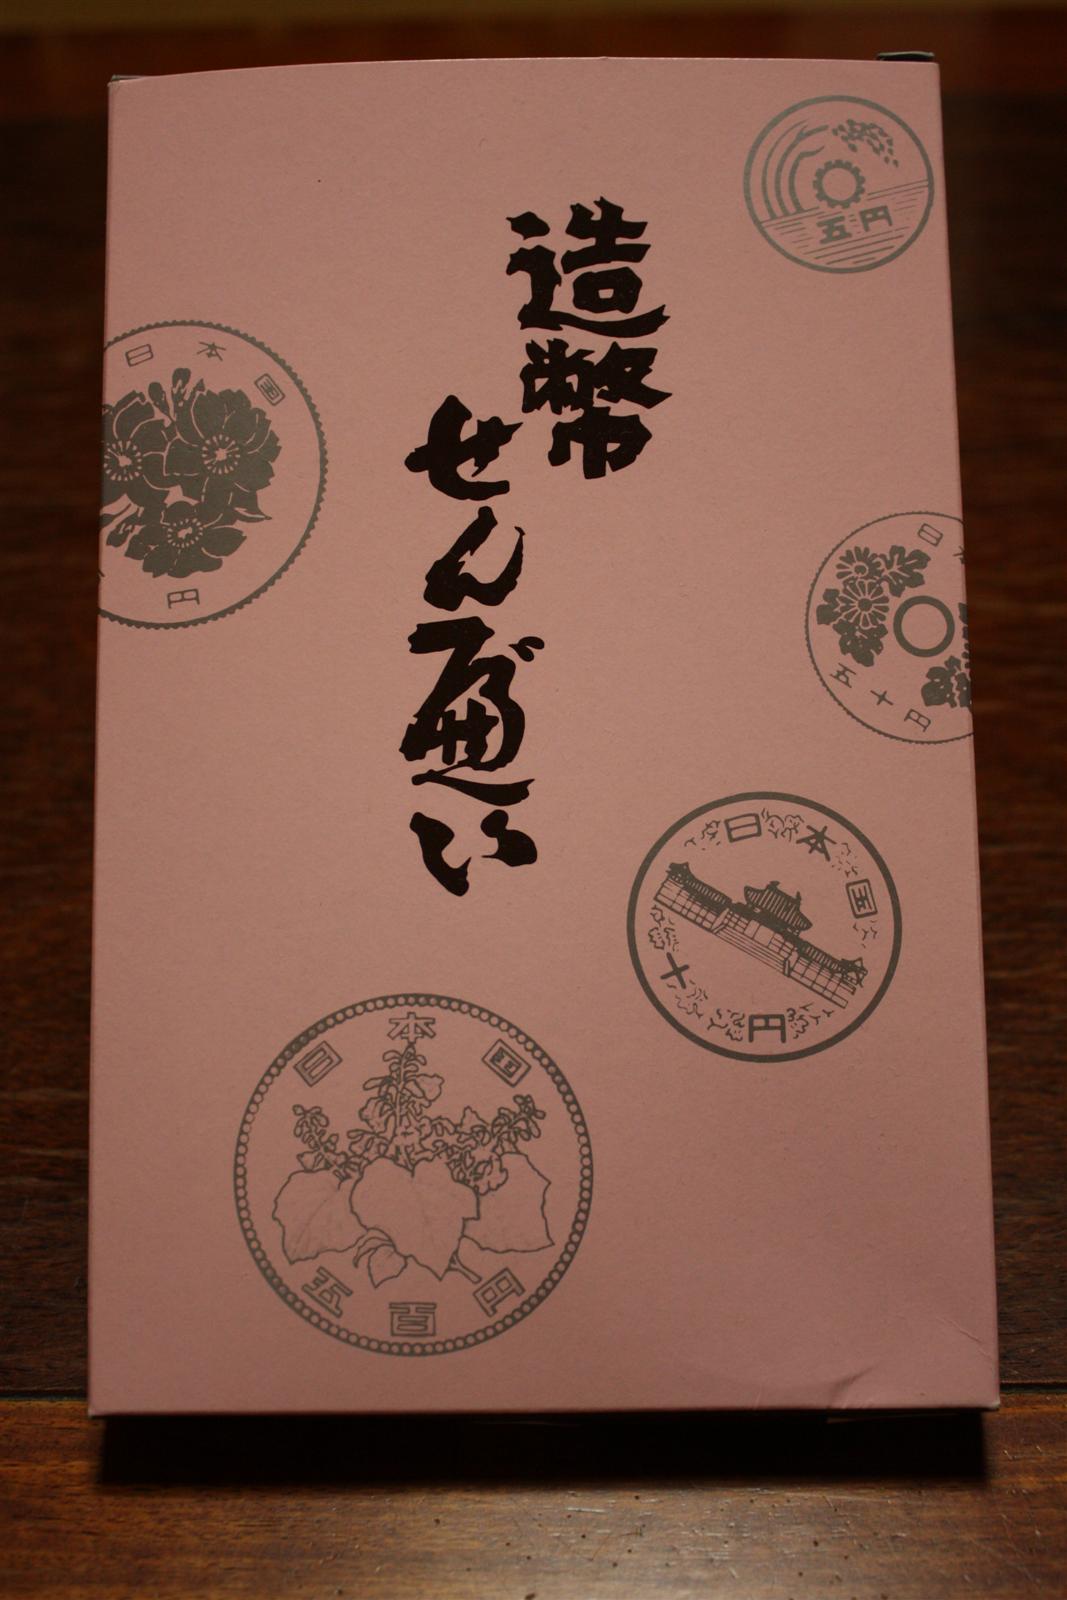 造幣
せんべい
五円
日本国
円
日本
五十円
日本国
十円
日本国
五百円